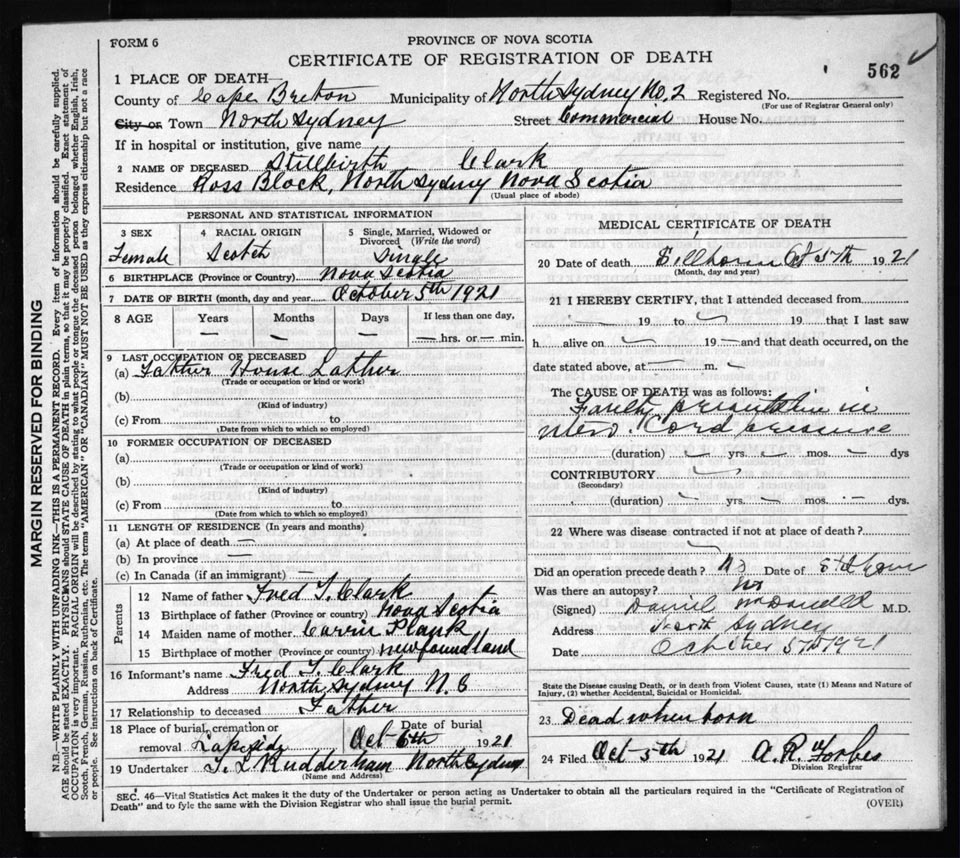 FORM 6
PROVINCE OF NOVA SCOTIA
CERTIFICATE OF REGISTRATION OF DEATH
562
1 PLACE OF DEATH—
County of Cape Breton Municipality of North Sydney No. 2 Registered No.
(For use of Registrar General only)
City or Town North Sydney Street Commercial House No.
If in hospital or institution, give name
2 NAME OF DECEASED Stillbirth Clark
Residence Ross Block, North Sydney Nova Scotia
(Usual place of abode)
PERSONAL AND STATISTICAL INFORMATION
3 SEX 4 RACIAL ORIGIN 5 Single, Married, Widowed or Divorced (Write the word)
Female Scotch Single
6 BIRTHPLACE (Province or Country) Nova Scotia
7 DATE OF BIRTH (month, day and year) October 5th 1921
8 AGE Years Months Days If less than one day,
— — — — hrs. or — min.
9 LAST OCCUPATION OF DECEASED
(a) Father House Lather
(Trade or occupation or kind or work)
(b)
(Kind of industry)
(c) From to
(Date from which to which so employed)
10 FORMER OCCUPATION OF DECEASED
(a)
(Trade or occupation or kind of work)
(b)
(Kind of industry)
(c) From to
(Date from which to which so employed)
11 LENGTH OF RESIDENCE (In years and months)
(a) At place of death —
(b) In province —
(c) In Canada (if an immigrant) —
Parents
12 Name of father Fred T. Clark
13 Birthplace of father (Province or country) Nova Scotia
14 Maiden name of mother Carrie Plank
15 Birthplace of mother (Province or country) Newfoundland
16 Informant's name Fred T. Clark
Address North Sydney N.S
17 Relationship to deceased Father
18 Place of burial, cremation or removal Lakeside Date of burial Oct 6th 1921
19 Undertaker T. L Rudderham North Sydney
(Name and Address)
MEDICAL CERTIFICATE OF DEATH
20 Date of death Stillborn Oct 5th 1921
(Month, day and year)
21 I HEREBY CERTIFY, that I attended deceased from
— 19 to 19 — that I last saw
h alive on 19 — and that death occurred, on the
date stated above, at — m.
The CAUSE OF DEATH was as follows:
Faulty presentation in
utero. Cord pressure
(duration) — yrs. — mos. — dys
CONTRIBUTORY
(Secondary)
(duration) — yrs. — mos. — dys.
22 Where was disease contracted if not at place of death?
Did an operation precede death? No Date of
Was there an autopsy? No
(Signed) Daniel McDonald M.D.
Address North Sydney
Date October 5th 1921
State the Disease causing Death, or in death from Violent Causes, state (1) Means and Nature of
Injury, (2) whether Accidental, Suicidal or Homicidal.
23 Dead when born
24 Filed Oct 5th 1921 A. R. Forbes
Division Registrar
SEC. 46—Vital Statistics Act makes it the duty of the Undertaker or person acting as Undertaker to obtain all the particulars required in the "Certificate of Registration of
Death" and to fyle the same with the Division Registrar who shall issue the burial permit.
(OVER)
MARGIN RESERVED FOR BINDING
N.B.—WRITE PLAINLY WITH UNFADING INK—THIS IS A PERMANENT RECORD. Every item of information should be carefully supplied.
AGE should be stated EXACTLY. PHYSICIANS should STATE CAUSE OF DEATH in plain terms, so that it may be properly classified. Exact statement of
OCCUPATION is very important. RACIAL ORIGIN will be described by stating to what people or tongue the deceased person belonged whether English, Irish,
Scotch, French, German, Russian, Ruthenian, etc. The terms "AMERICAN" or "CANADIAN" MUST NOT BE USED as they express citizenship but not a race
or people. See instructions on back of Certificate.